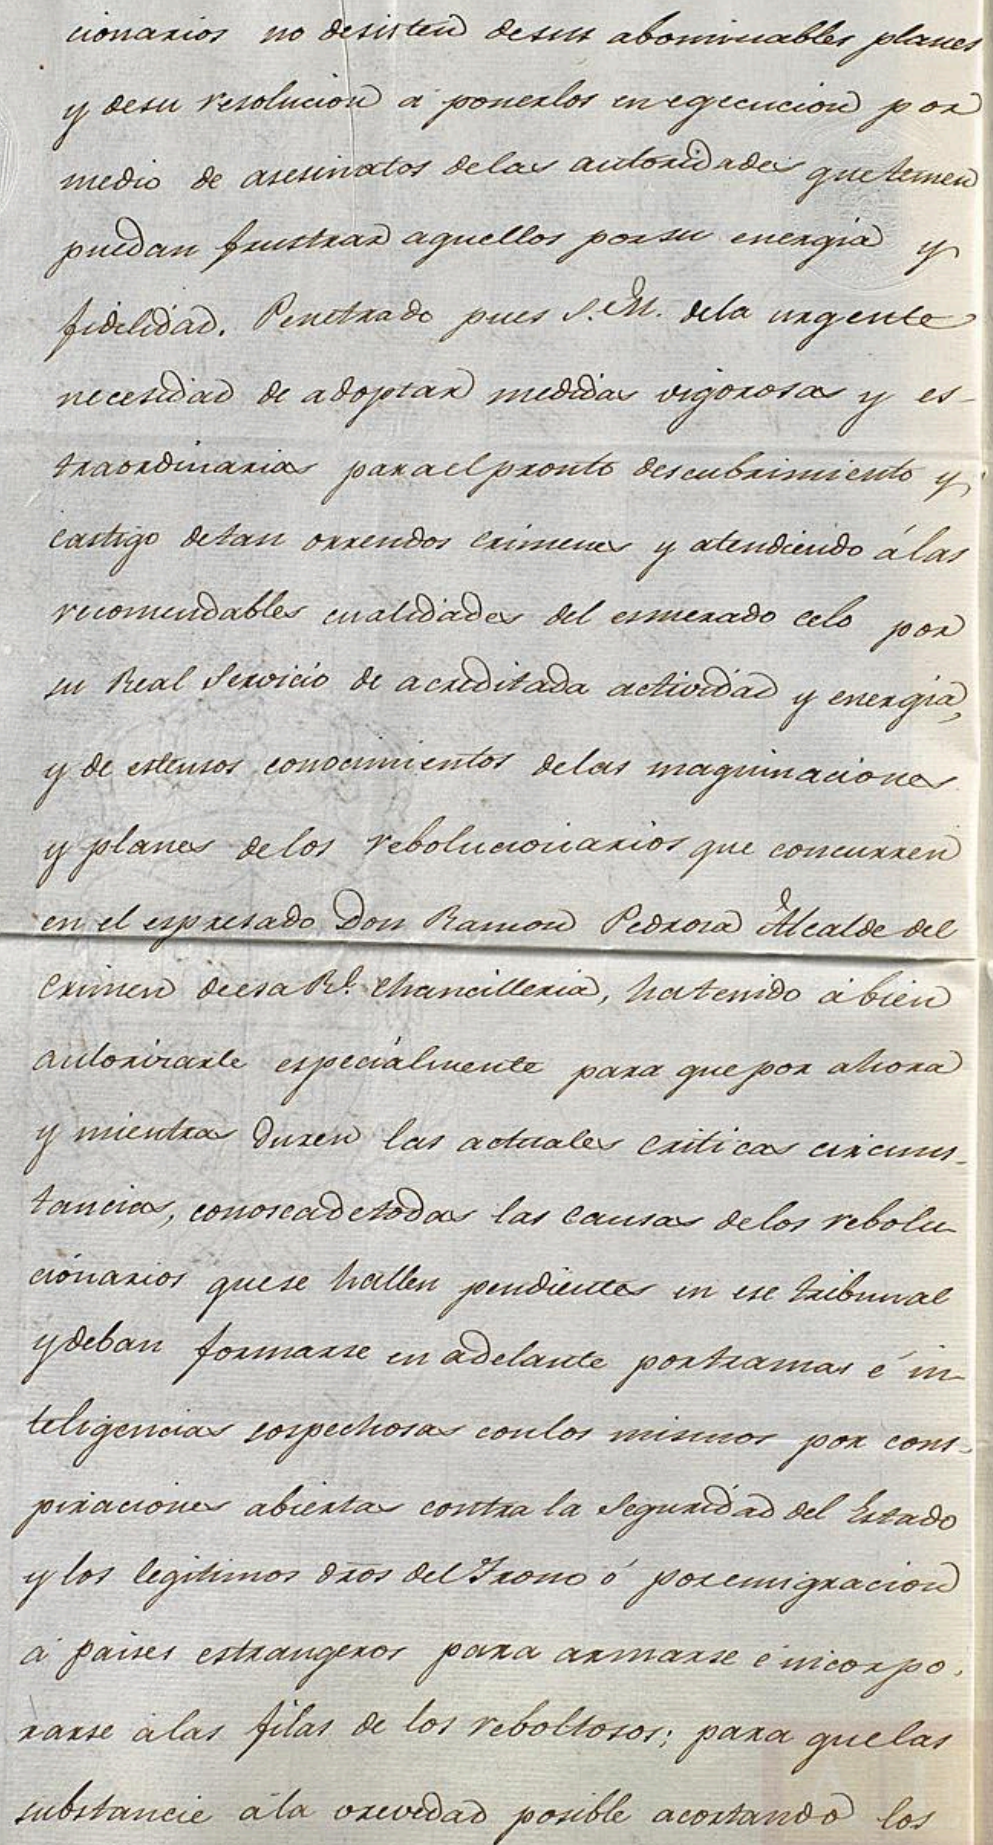 cionarios no desisten desus abominables planes
y desu resolucion a ponerlos en egecucion por
medio de asesinatos delas autoridades que temen
puedan frustrar aquellos por su energia y
fidelidad. Penetrado pues S.M. dela urgente
necesidad de adoptar medidas vigorosas y es-
traordinarias para el pronto descubrimiento y
castigo detan orrendos crimenes y atendiendo á las
recomendables cualidades del esmerado celo por
su Real Servicio de acreditada actividad y energia,
y de estensos conocimientos delas maquinaciones
y planes de los rebolucionarios que concurren
en el espresado Don Ramon Pedrosa Alcalde del
Crimen deesa Rl. Chancilleria, ha tenido á bien
autorizarle especialmente para que por ahora
y mientras duren las actuales criticas circuns-
tancias, conosca de todas las causas delos rebolu-
cionarios que se hallen pendientes en ese tribunal
y deban formarse en adelante por tramas é in-
teligencias sospechosas con los mismos por cons-
piraciones abiertas contra la Seguridad del Estado
y los legitimos dros del Trono ó por emigracion
á paises estrangeros para armarse é incorpo-
rarse á las filas de los reboltosos; para que las
substancie á la brevedad posible acortando los